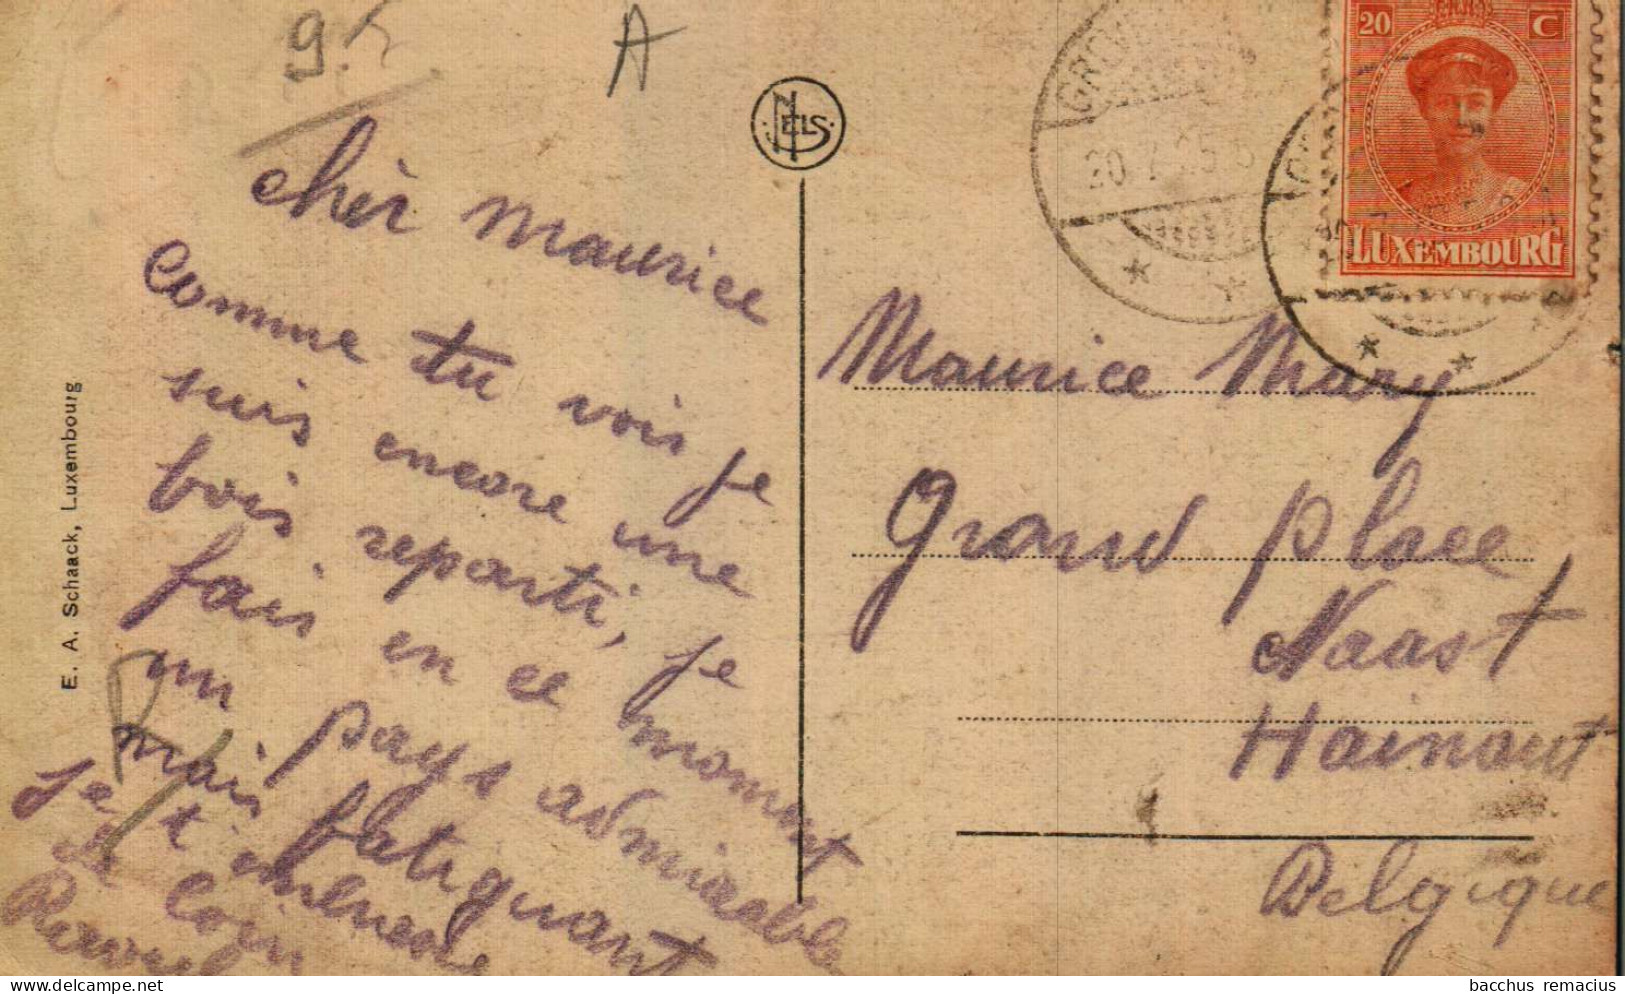 9.
A
NELS
20 C
LUXEMBOURG
20.7.25
E. A. Schaack, Luxembourg
chèr Maurice
Comme tu vois je
suis encore une
fois reparti, je
fais en ce moment
un pays admirable
mais fatiguant
je t'embrasse
de loin
Maurice Mary
Grand Place,
Naast
Hainaut
Belgique
bacchus remacius